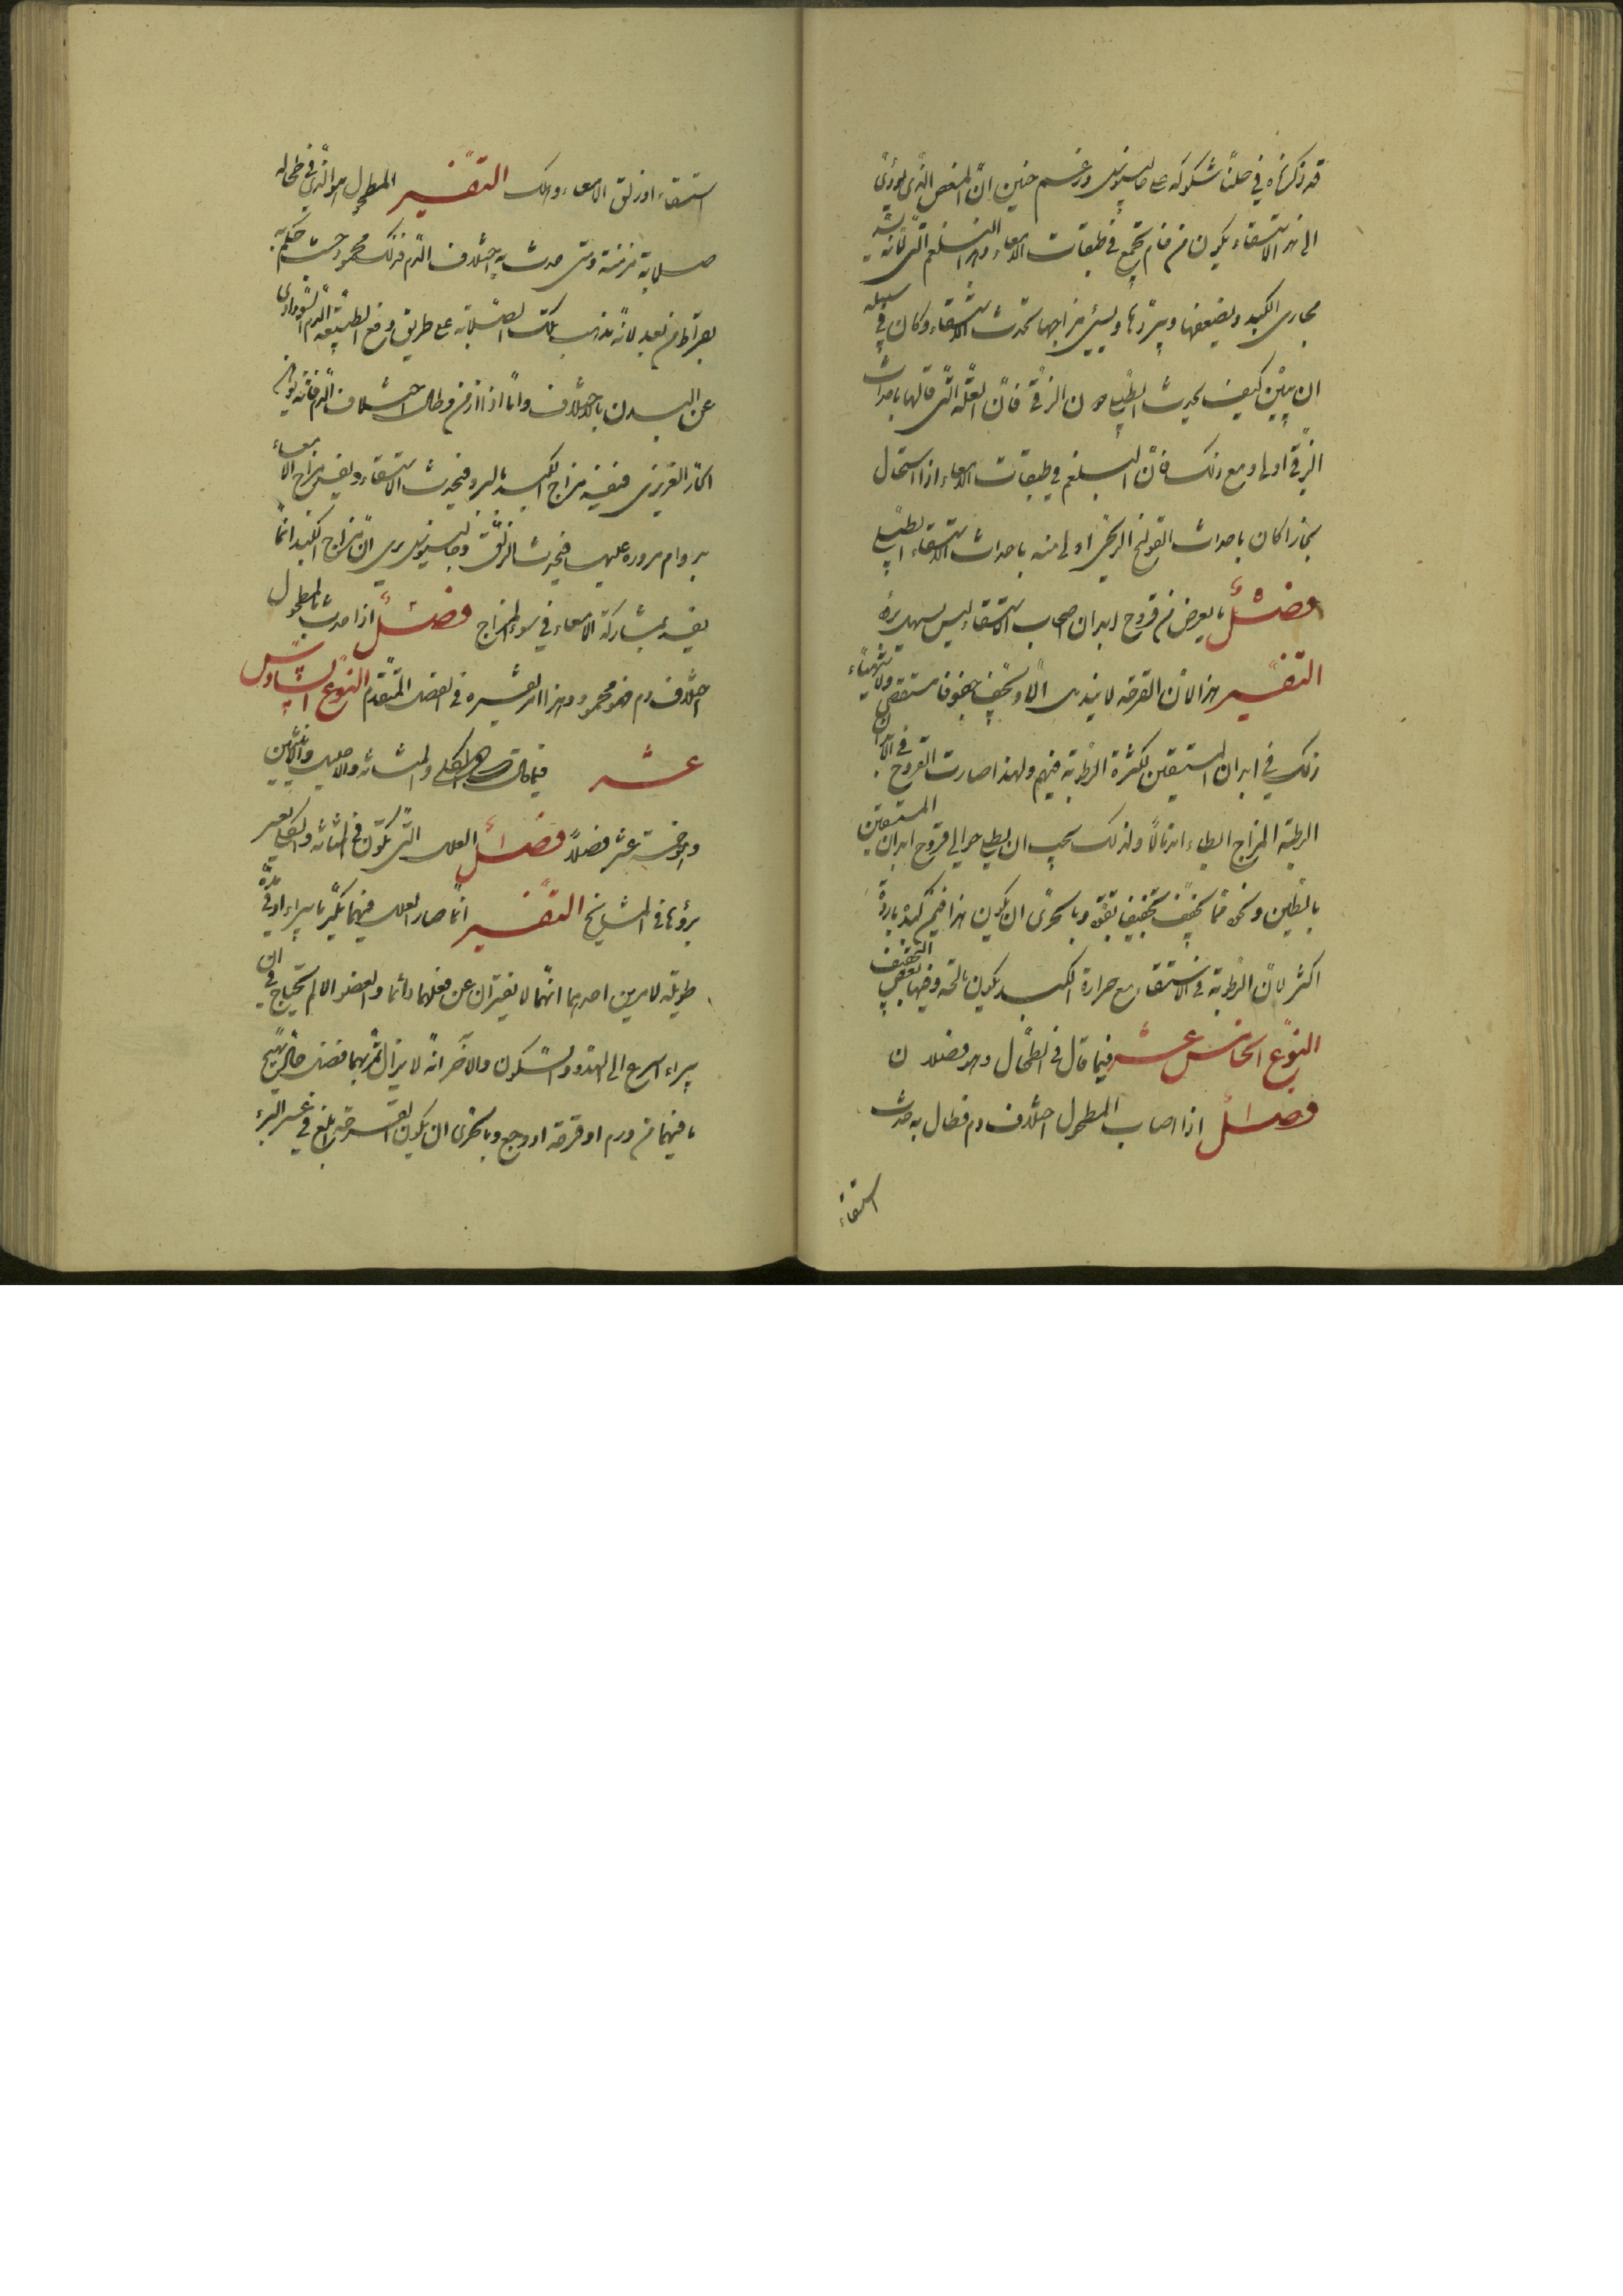 قد ذكرناه في حلنا شكوكه على جالينوس وزعم حنين ان المغص الذي يؤدي
الى هذا الاستسقاء يكون من خام يجتمع في طبقات الامعاء وهذا البلغم التي لانه يسد
مجاري الكبد ويضعفها ويبردها ويسيئ مزاجها تحدث الاستسقاء وكان سبيله في
ان يبين كيف يحدث الطبلي دون الزقي فان العلة التي قالها باحداث
الزقي اولى ومع ذلك فان البلغم في طبقات الامعاء اذا استحال
بخارا كان باحداث القولنج الريحي اولى منه باحداث الاستسقاء الطبلي
فصل ما يعرض من قروح ابدان اصحاب الاستسقاء ليس يسهل برؤه
التفسير هذا لان القرحة لا يندمل الا او تجف جفوفا مستقصى ولا يتهياء
ذلك في ابدان المستسقين لكثرة الرطوبة فيهم ولهذا صارت القروح في الابدان
الرطبة المزاج ابطاء اندمالا ولذلك يجب ان يطلى حوالي قروح ابدان المستسقين
بالطين ونحوه مما يجفف تجفيفا بقوة وبالحرى ان يكون هذا فيمن كبده باردة
اكثر لان الرطوبة في الاستسقاء مع حرارة الكبد يكون مالحة وفيها بعض التجفيف
النوع الخامس عشر فيما قال في الطحال وهو فصلان
فصل اذا اصاب المطحول اختلاف دم فطال به حدث
استسقاء
استسقاء او زلق الامعاء وهلك التفسير المطحول هو الذي في طحاله
صلابة مزمنة ومتى حدث به اختلاف الدم فذلك محمود حيث حكم به
بقراط من بعد لانه يذهب بتلك الصلابة على طريق دفع الطبيعة الدم السوداوى
عن البدن بالاختلاف واما اذا ازمن وطال اختلاف الدم فانه يوهن
الحار الغريزى فيفسد مزاج الكبد بالبرد فيحدث الاستسقاء ويفسد مزاج الامعاء
بدوام مروره عليها فيحدث الزلق وجالينوس يرى ان مزاج الكبد انما
يفسد بمشاركة الامعاء في سوء المزاج فصل اذا حدث بالمطحول
اختلاف دم فهو محمود وهذا مر تفسيره في الفصل المتقدم النوع السادس
عشر فيما قال في الكلى والمثانة والاحليل والانثيين
وهو خمسة عشر فصلا فصل العلل التي تكون في المثانة والكلى يعسر
برؤها في المشايخ التفسير انما صار العلل فيهما يكثر ما يبراء او في مدة
طويلة لامرين احدهما انهما لا يفتران عن فعلهما دائما والعضو الالم يحتاج في ان
يبراء اسرع الى الهدو والسكون والآخر انه لا يزال يمر بهما فضل حاد يهيج
ما فيهما من ورم او قرحة او وجع وبالحرى ان يكون القرحة ابلغ في عسر البرء